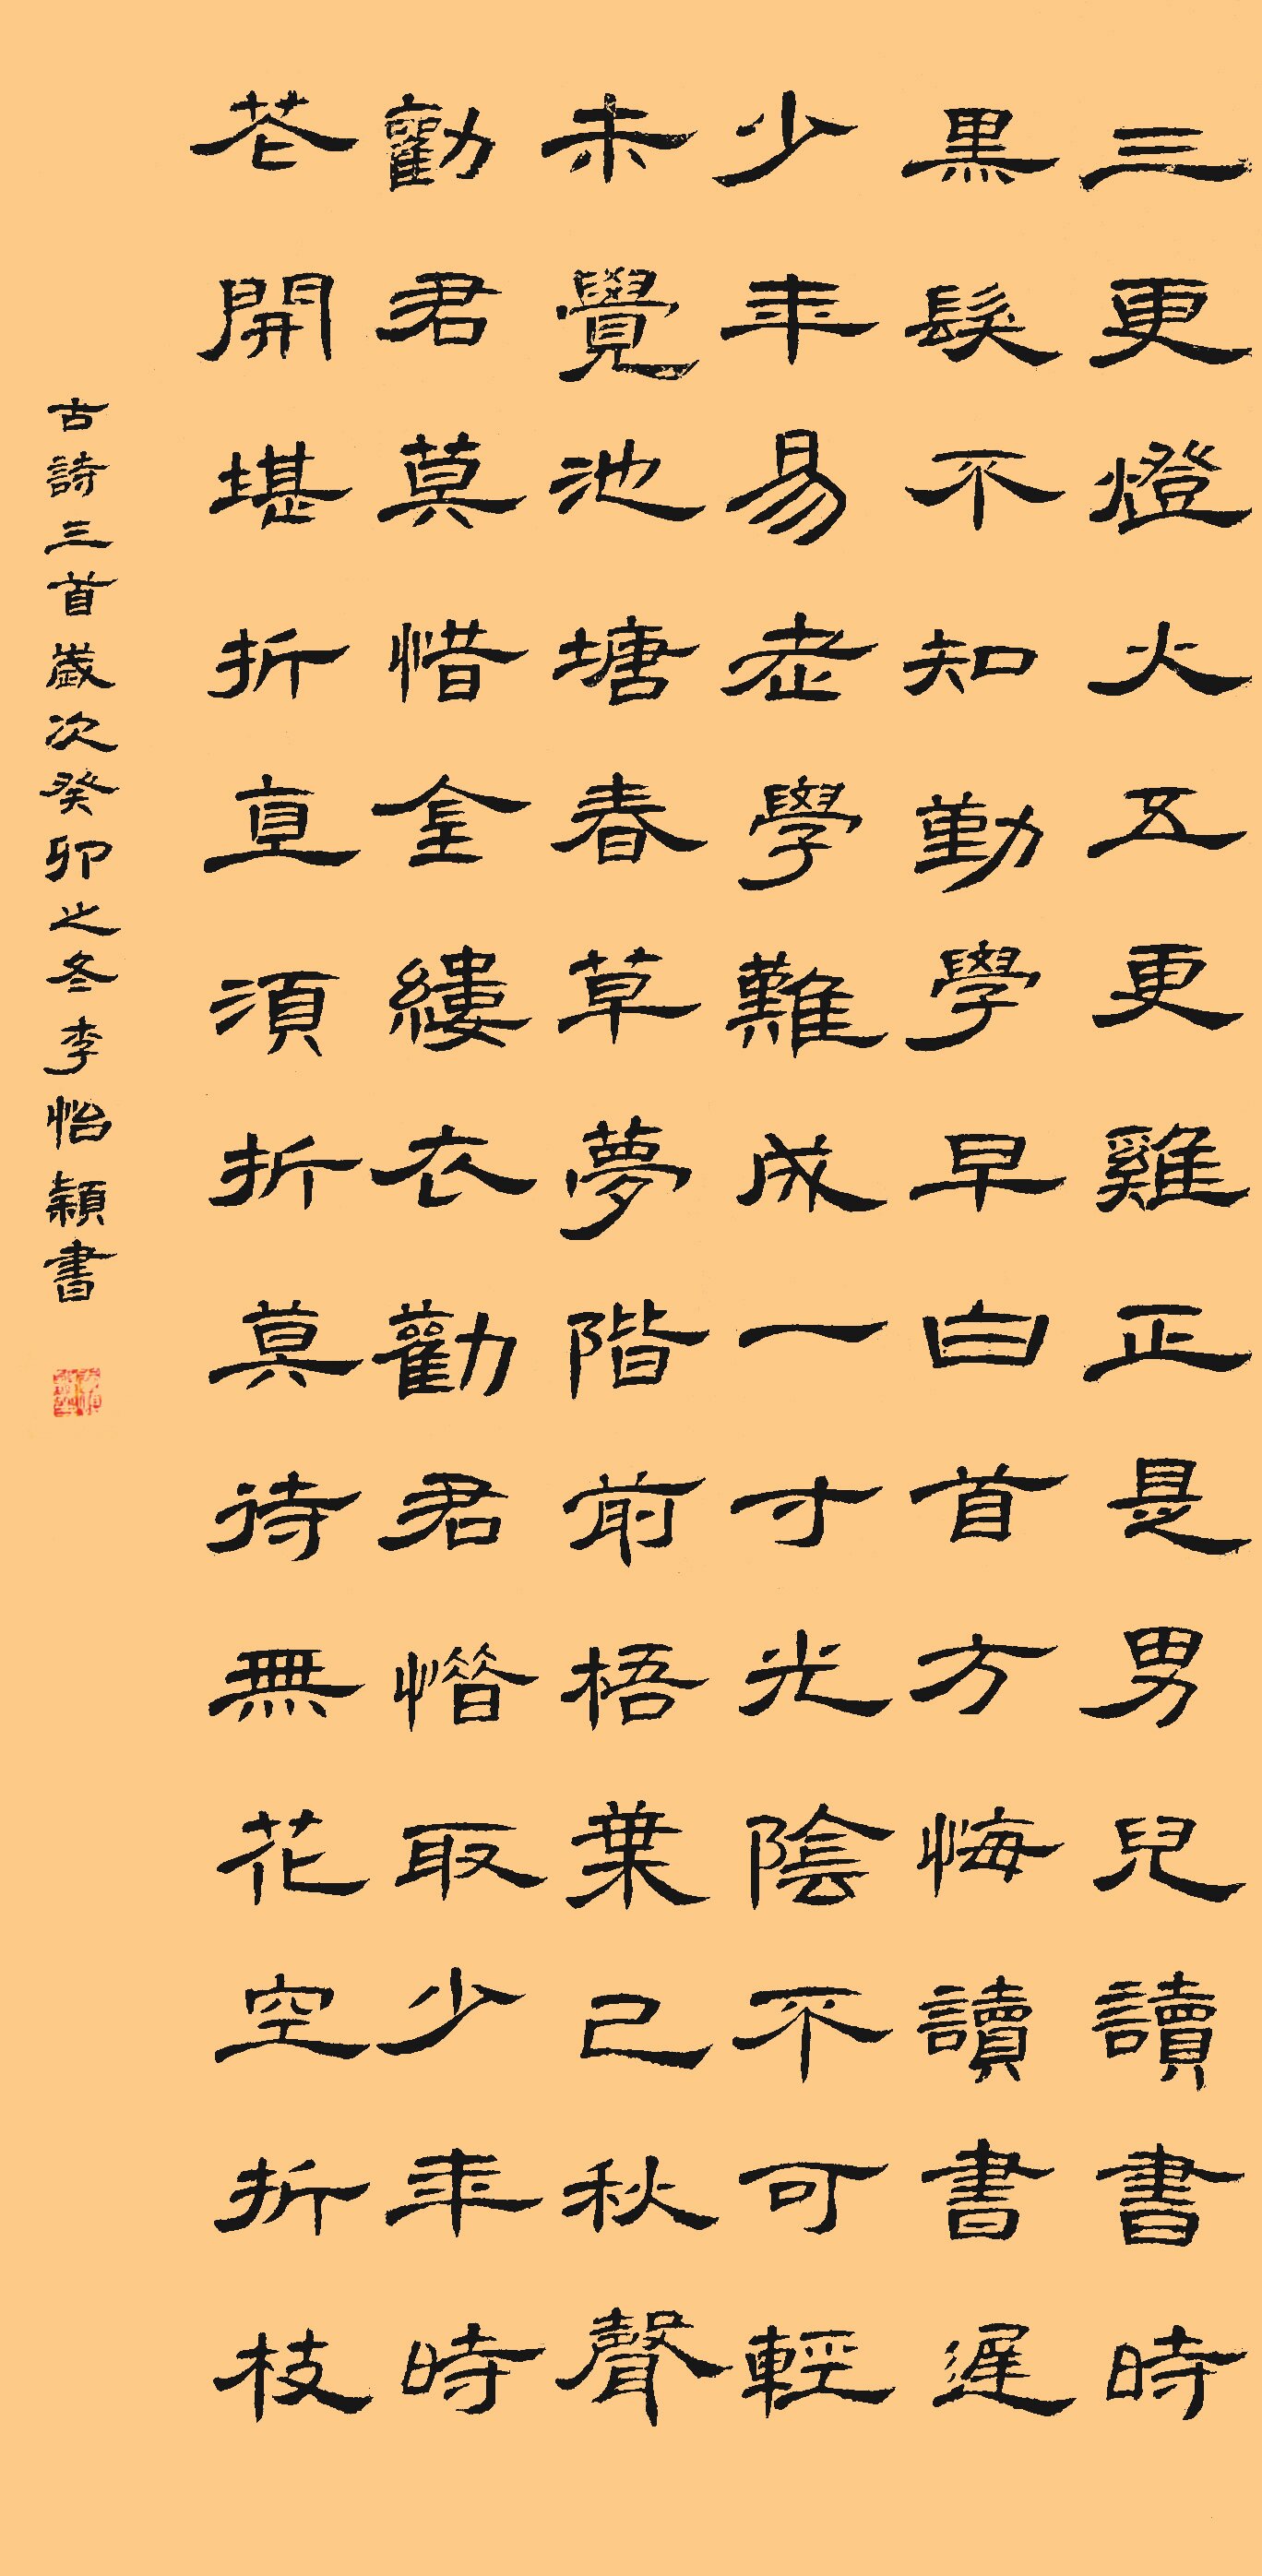 三更燈火五更雞正是男兒讀書時
黑髮不知勤學早白首方悔讀書遲
少年易老學難成一寸光陰不可輕
未覺池塘春草夢階前梧葉已秋聲
勸君莫惜金縷衣勸君惜取少年時
花開堪折直須折莫待無花空折枝
古詩三首歲次癸卯之冬李怡穎書